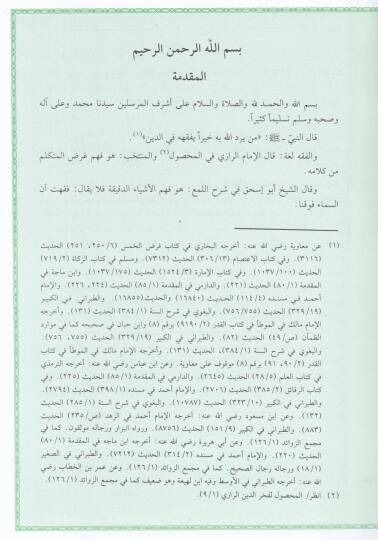 بسم الله الرحمن الرحيم
المقدمة
بسم الله والحمد لله والصلاة والسلام على أشرف المرسلين سيدنا محمد وعلى آله
وصحبه وسلم تسليماً كثيراً.
قال النبيّ ـ ﷺ: «من يرد الله به خيراً يفقهه في الدين»(١).
والفقه لغة: قال الإمام الرازي في المحصول(٢) والمنتخب: هو فهم غرض المتكلم
من كلامه.
وقال الشيخ أبو إسحق في شرح اللمع: هو فهم الأشياء الدقيقة فلا يقال: فقهت أن
السماء فوقنا.
(١) عن معاوية رضي الله عنه: أخرجه البخاري في كتاب فرض الخمس (٢٥٠/٦، ٢٥١) الحديث
(٣١١٦). وفي كتاب الاعتصام (٣٠٦/١٣) الحديث (٧٣١٢). ومسلم في كتاب الزكاة (٧١٩/٢)
الحديث (١٠٣٧/١٠٠). وفي كتاب الإمارة (١٥٢٤/٣) الحديث (١٠٣٧/١٧٥). وابن ماجة في
المقدمة (٨٠/١) الحديث (٢٢١). والدارمي في المقدمة (٨٥/١) الحديث (٢٢٤، ٢٢٦). والإمام
أحمد في مسنده (١١٤/٤) الحديث (١٦٨٤٠) والحديث (١٦٨٥٥). والطبراني في الكبير
(٣٢٩/١٩) الحديث (٧٥٥/٧٥٦). والبغوي في شرح السنة (٣٨٤/١) الحديث (١٣١). وأخرجه
الإمام مالك في الموطأ في كتاب القدر (٩١٩٠/٢) برقم (٨) وابن حبان في صحيحه كما في موارد
الظمآن (ص/٤٩) الحديث (٨٢). والطبراني في الكبير (٣٢٩/١٩) الحديث (٧٥٥، ٧٥٦).
والبغوي في شرح السنة (٣٨٤/١)، الحديث (١٣١). وأخرجه الإمام مالك في الموطأ في كتاب
القدر (٩٠/٢، ٩١) برقم (٨) موقوف على معاوية. وعن ابن عباس رضي الله عنه: أخرجه الترمذي
في كتاب العلم (٢٨/٥) الحديث (٢٦٤٥). والدارمي في المقدمة (٨٥/١) الحديث (٢٢٥). وفي
كتاب الرقائق (٣٨٥/٢) الحديث (٢٧٠٦). والإمام أحمد في مسنده (٣٩٨/١) الحديث (٢٧٩٤).
والطبراني في الكبير (٣٢٣/١٠) الحديث (١٠٧٨٧). والبغوي في شرح السنة (٢٨٥/١) الحديث
(١٣٢). وعن ابن مسعود رضي الله عنه: أخرجه الإمام أحمد في الزهد (ص/٢٣٥) الحديث
(٨٨٣). والطبراني في الكبير (١٥١/٩) الحديث (٨٧٥٦). ورواه البزار ورجاله موثقون. كما في
مجمع الزوائد (١٢٦/١). وعن أبي هريرة رضي الله عنه: أخرجه ابن ماجه في المقدمة (٨٠/١)
الحديث (٢٢٠). والإمام أحمد في مسنده (٣١٤/٢) الحديث (٧٢١٢). والطبراني في الصغير
(١٨/١) ورجاله رجال الصحيح. كما في مجمع الزوائد (١٢٦/١). وعن عمر بن الخطاب رضي
الله عنه: أخرجه الطبراني في الأوسط وفيه ابن لهيعة وهو ضعيف كما في مجمع الزوائد (١٢٦/١).
(٢) انظر/ المحصول لفخر الدين الرازي (٩/١).